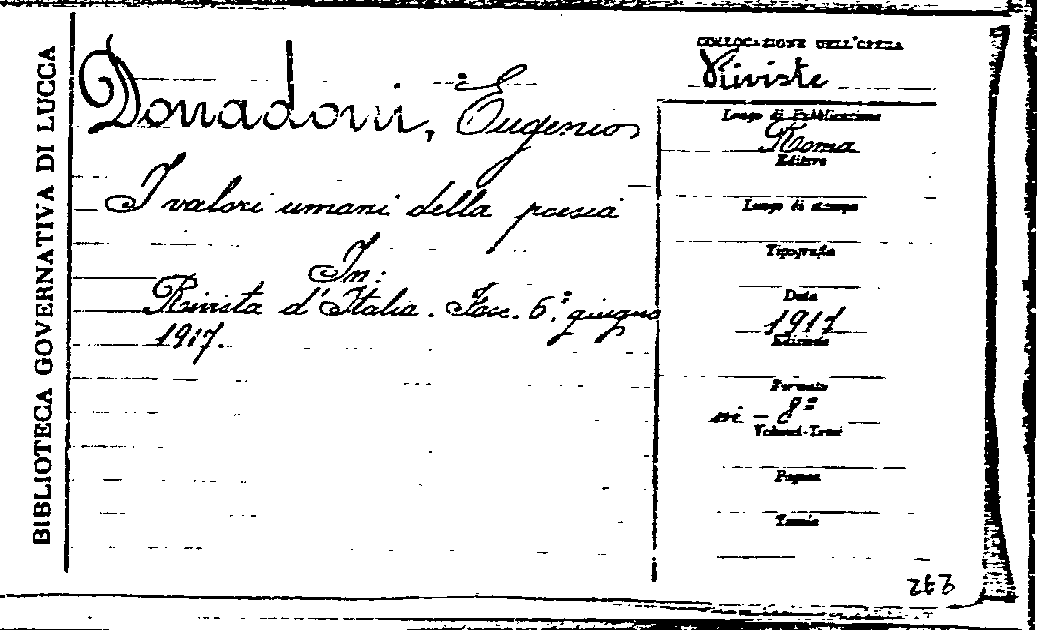 BIBLIOTECA GOVERNATIVA DI LUCCA
Donadoni, Eugenio
I valori umani della poesia
In:
Rivista d'Italia. Fasc. 6.° giugno
1917.
COLLOCAZIONE DELL'OPERA
Riviste
Luogo di Pubblicazione
Roma
Editore
Luogo di stampa
Tipografia
Data
1917
Edizione
Formato
in - 8°
Volumi-Tomi
Pagine
Tavole